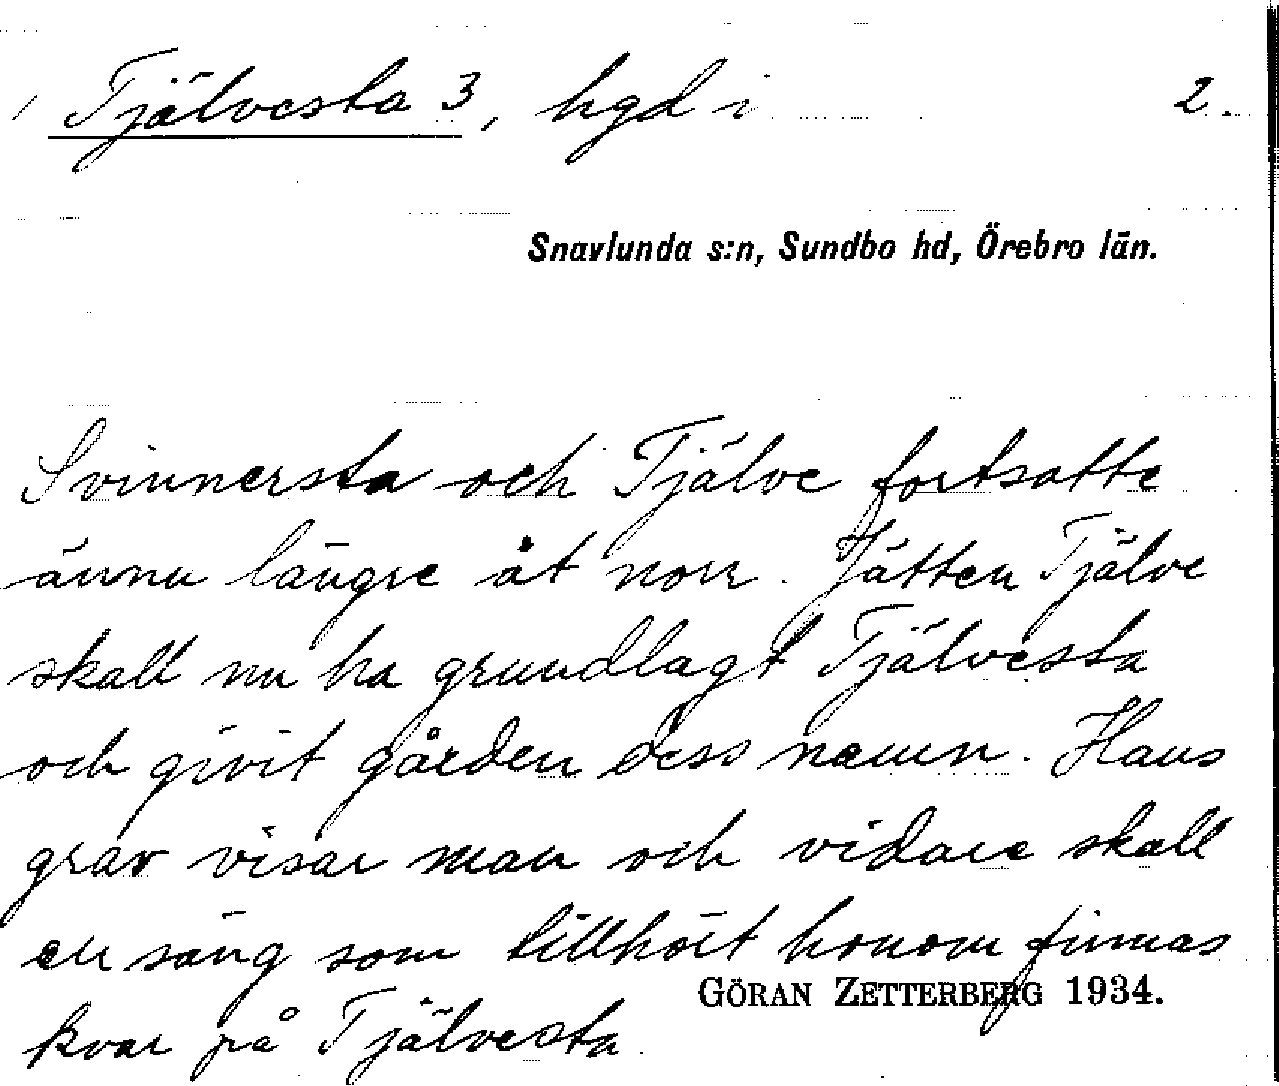 Tjälvesta 3, hgd i 2.
Snavlunda s:n, Sundbo hd, Örebro län.
Svinnersta och Tjälve fortsatte
ännu längre åt norr. Jätten Tjälve
skall nu ha grundlagt Tjälvesta
och givit gården dess namn. Hans
grav visar man och vidare skall
en säng som tillhört honom finnas
GÖRAN ZETTERBERG 1934.
kvar på Tjälvesta.